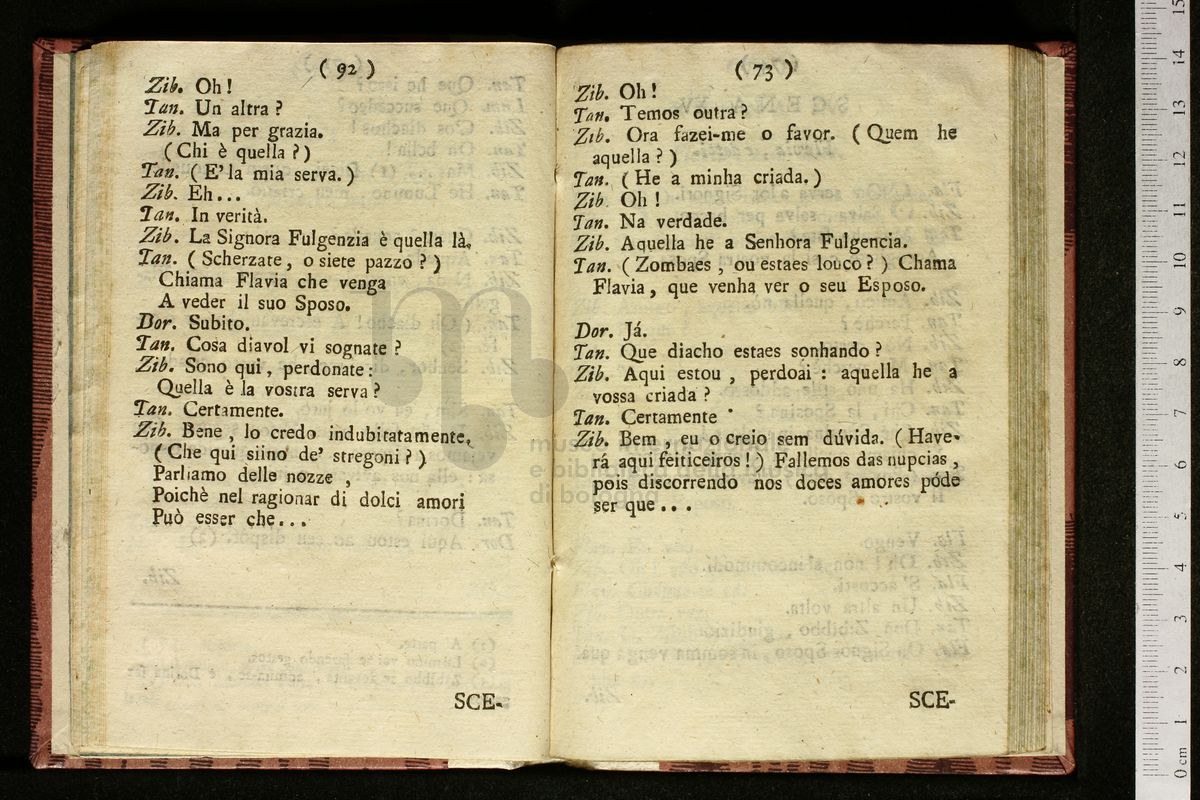 ( 92 )
Zib. Oh!
Tan. Un altra?
Zib. Ma per grazia.
(Chi è quella?)
Tan. (E'la mia serva.)
Zib. Eh...
Tan. In verità.
Zib. La Signora Fulgenzia è quella là,
Tan. (Scherzate, o siete pazzo?)
Chiama Flavia che venga
A veder il suo Sposo.
Dor. Subito.
Tan. Cosa diavol vi sognate?
Zib. Sono qui, perdonate:
Quella è la vostra serva?
Tan. Certamente.
Zib. Bene, lo credo indubitatamente,
(Che qui siino de' stregoni?)
Parliamo delle nozze,
Poichè nel ragionar di dolci amori
Può esser che...
SCE-
( 73 )
Zib. Oh!
Tan. Temos outra?
Zib. Ora fazei-me o favor. (Quem he
aquella?)
Tan. (He a minha criada.)
Zib. Oh!
Tan. Na verdade.
Zib. Aquella he a Senhora Fulgencia.
Tan. (Zombaes, ou estaes louco?) Chama
Flavia, que venha ver o seu Esposo.
Dor. Já.
Tan. Que diacho estaes sonhando?
Zib. Aqui estou, perdoai: aquella he a
vossa criada?
Tan. Certamente
Zib. Bem, eu o creio sem dúvida. (Have-
rá aqui feiticeiros!) Fallemos das nupcias,
pois discorrendo nos doces amores póde
ser que...
SCE-
museo
e biblioteca della musica
di bologna
0 cm 1 2 3 4 5 6 7 8 9 10 11 12 13 14 15